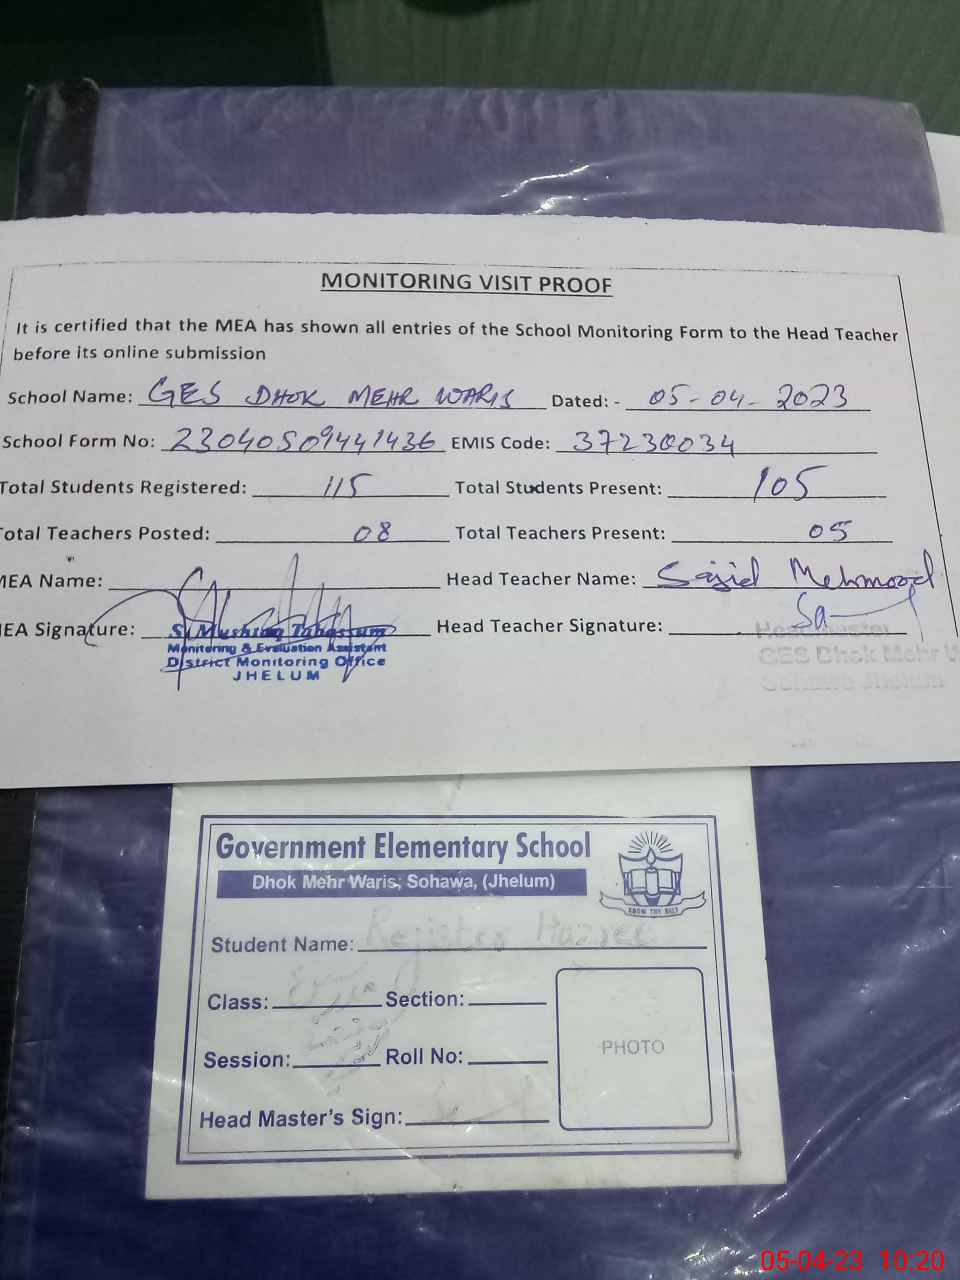 MONITORING VISIT PROOF
It is certified that the MEA has shown all entries of the School Monitoring Form to the Head Teacher
before its online submission
School Name: GES DHOK MEHR WARIS Dated: - 05-04-2023
School Form No: 23040509441436 EMIS Code: 37230034
Total Students Registered: 115 Total Students Present: 105
Total Teachers Posted: 08 Total Teachers Present: 05
MEA Name: Head Teacher Name: Sajid Mehmood
MEA Signature: Head Teacher Signature:
S. Mushtaq Tabassum
Monitoring & Evaluation Assistant
District Monitoring Office
JHELUM
Headmaster
GES Dhok Mehr W
Sohawa Jhelum
Government Elementary School
Dhok Mehr Waris, Sohawa, (Jhelum)
KNOW THY SELF
Student Name: Register
Class: Section:
Session: Roll No:
PHOTO
Head Master's Sign:
05-04-23 10:20